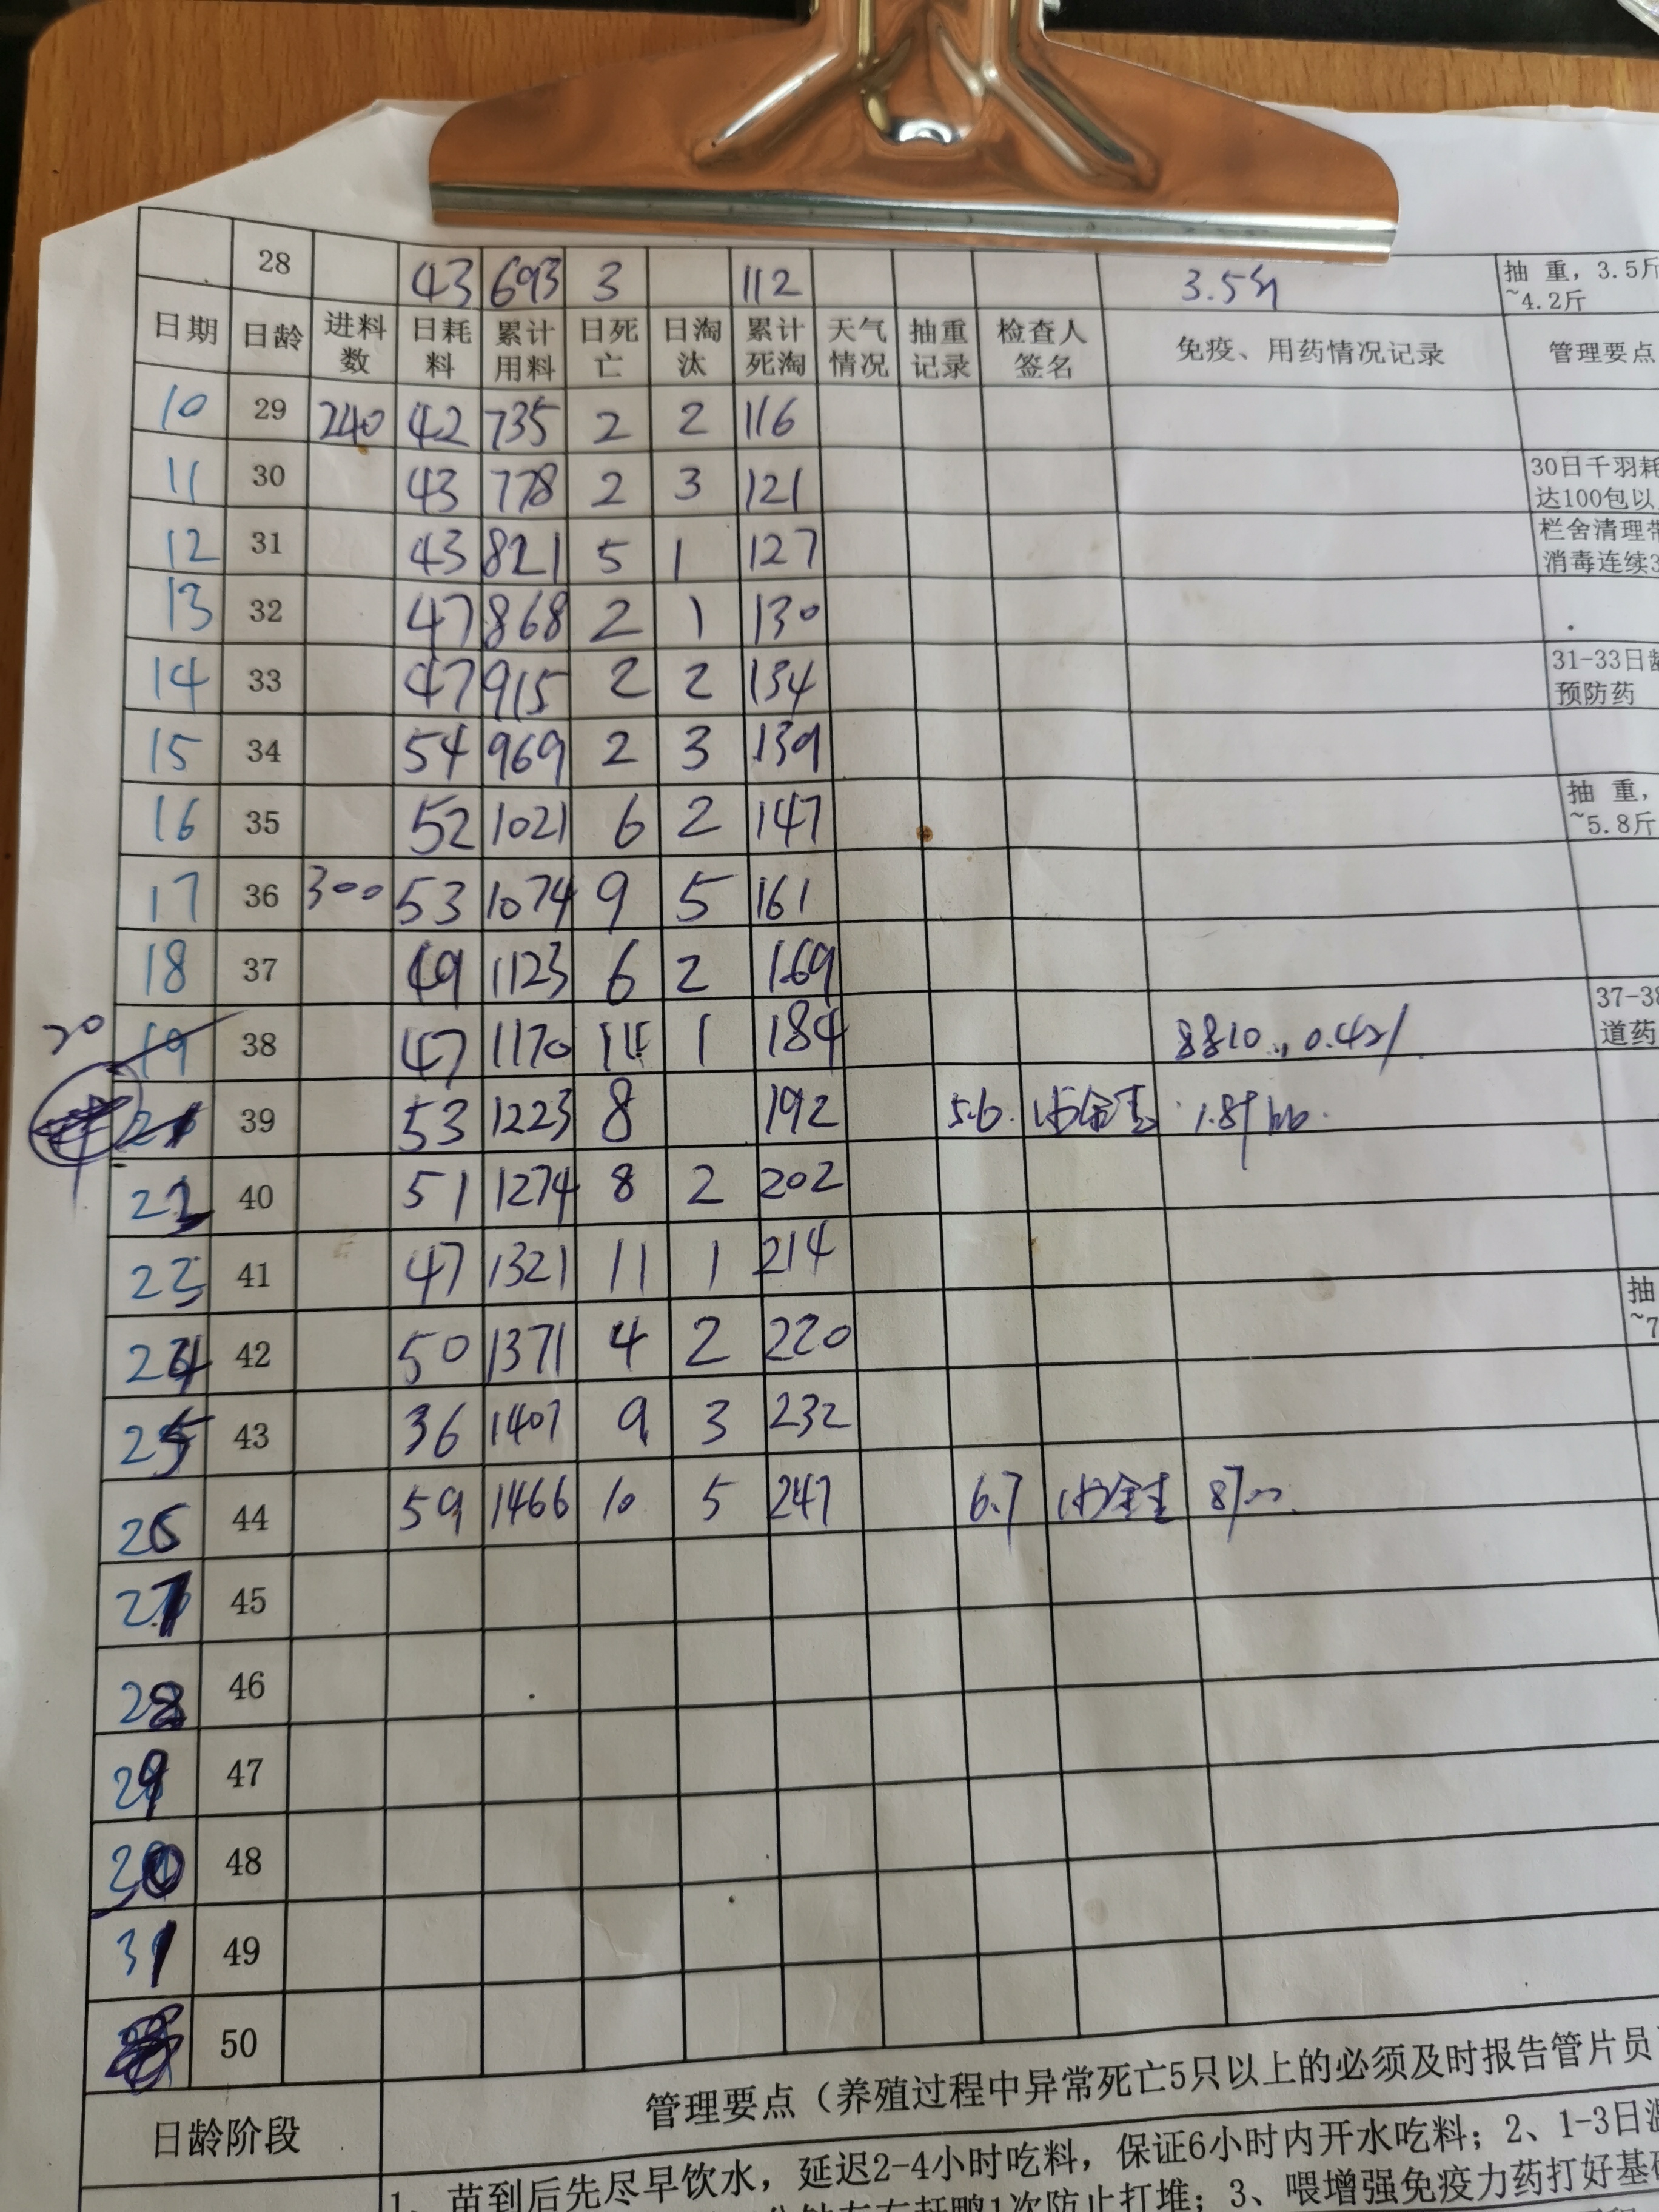 28 43 693 3 112 3.5斤 抽 重，3.5斤
~4.2斤
日期 日龄 进料数 日耗料 累计用料 日死亡 日淘汰 累计死淘 天气情况 抽重记录 检查人签名 免疫、用药情况记录 管理要点
10 29 240 42 735 2 2 116
11 30 43 778 2 3 121 30日千羽耗
达100包以
12 31 43 821 5 1 127 栏舍清理带
消毒连续3
13 32 47 868 2 1 130
14 33 47 915 2 2 134 31-33日龄
预防药
15 34 54 969 2 3 139
16 35 52 1021 6 2 147 抽 重，
~5.8斤
17 36 300 53 1074 9 5 161
18 37 49 1123 6 2 169
20 19 38 47 1170 14 1 184 8810 0.42 37-38
道药
21 39 53 1223 8 192 5.6
22 40 51 1274 8 2 202
23 41 47 1321 11 1 214
24 42 50 1371 4 2 220 抽
~7
25 43 36 1407 9 3 232
26 44 59 1466 10 5 247 6.7
27 45
28 46
29 47
30 48
31 49
50
日龄阶段 管理要点（养殖过程中异常死亡5只以上的必须及时报告管片员
1、苗到后先尽早饮水，延迟2-4小时吃料，保证6小时内开水吃料；2、1-3日温
赶鸭1次防止打堆；3、喂增强免疫力药打好基础